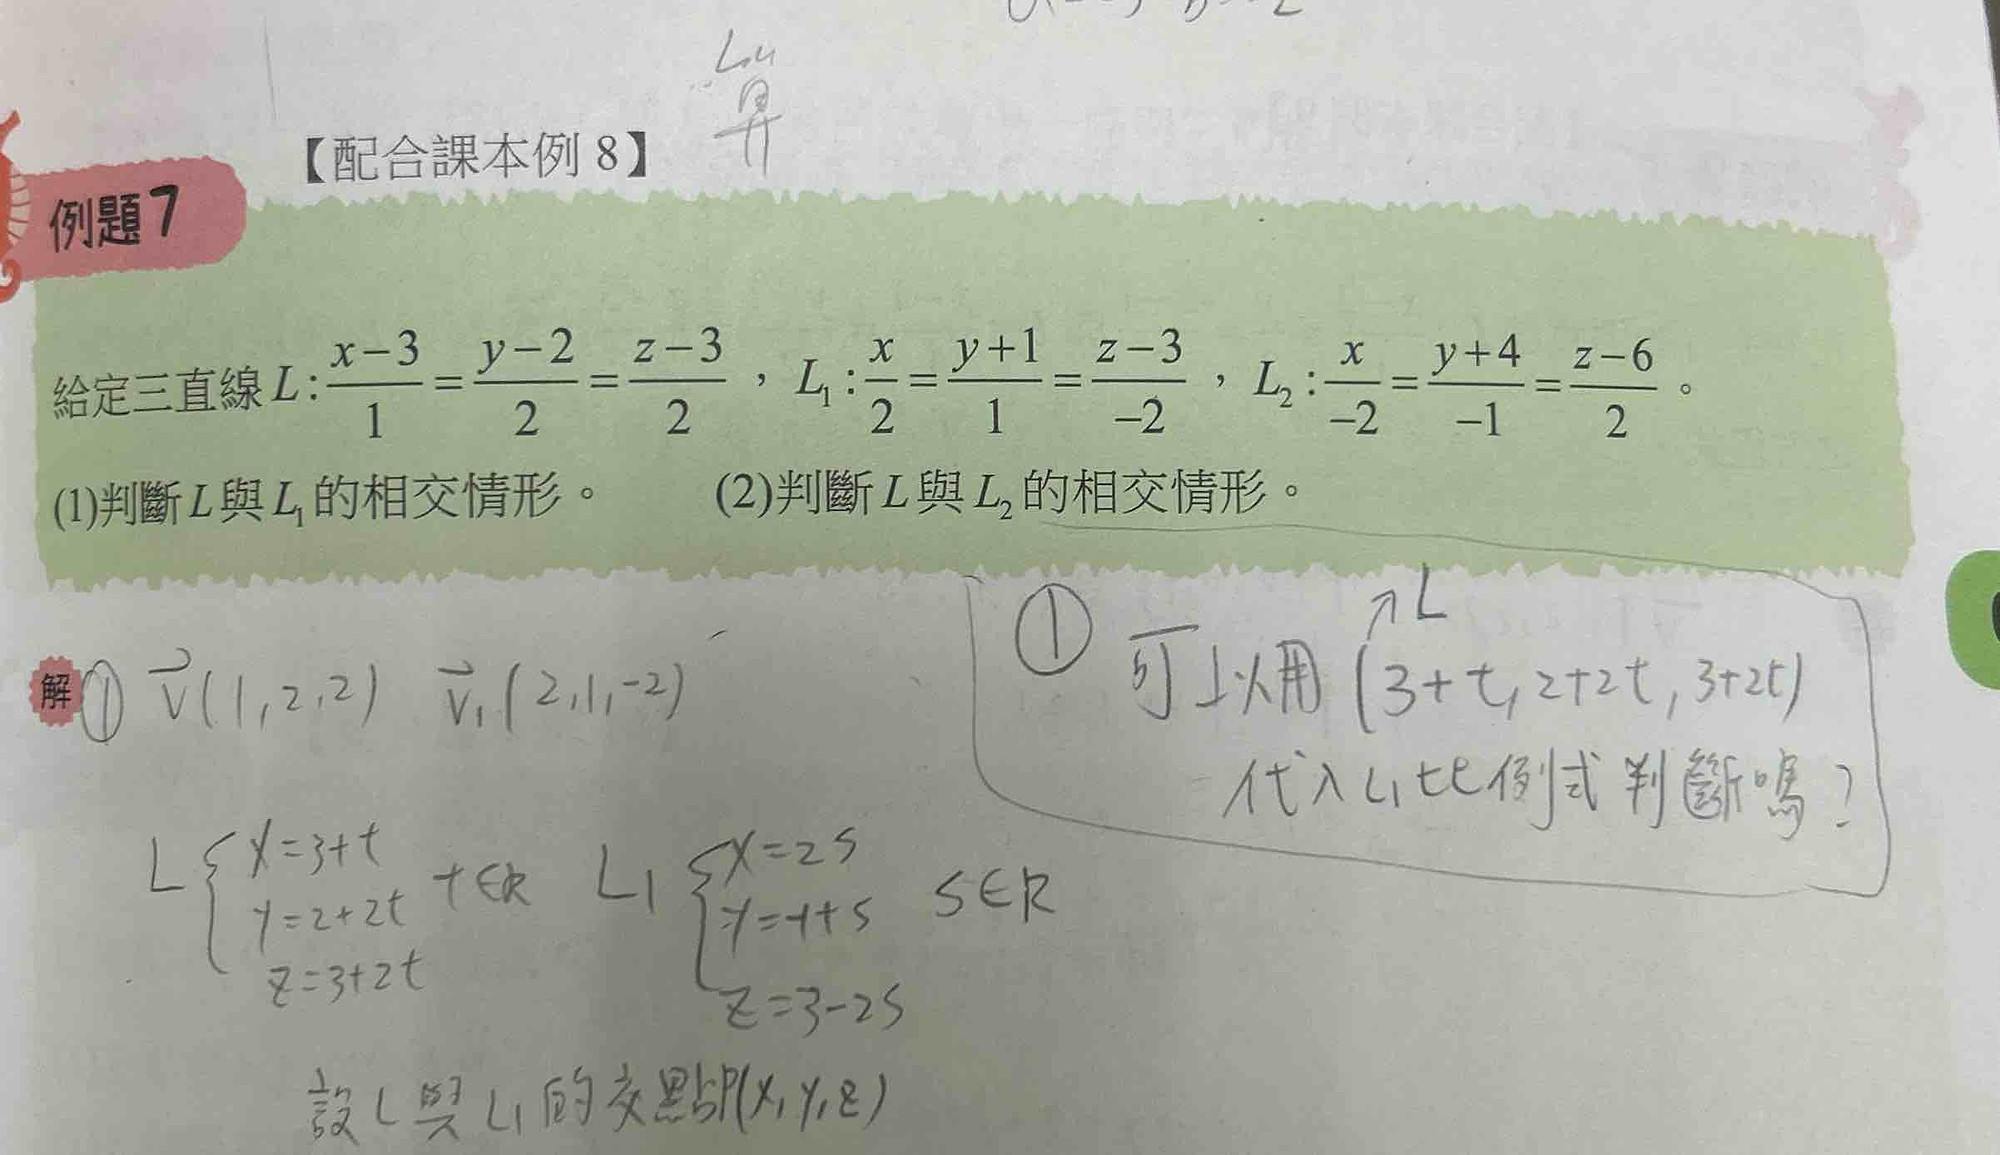 【配合課本例 8】
例題7
給定三直線 L : \frac{x-3}{1} = \frac{y-2}{2} = \frac{z-3}{2} ， L₁ : \frac{x}{2} = \frac{y+1}{1} = \frac{z-3}{-2} ， L₂ : \frac{x}{-2} = \frac{y+4}{-1} = \frac{z-6}{2} 。
(1)判斷 L 與 L₁ 的相交情形。 (2)判斷 L 與 L₂ 的相交情形。
解 ① \vec{v}(1,2,2) \vec{v₁}(2,1,-2)
L { x=3+t
y=2+2t t∈R
z=3+2t
L₁ { x=2s
y=-1+s s∈R
z=3-2s
設 L 與 L₁ 的交點P(x,y,z)
① ↗L
可以用 (3+t, 2+2t, 3+2t)
代入 L₁ 比例式判斷嗎?